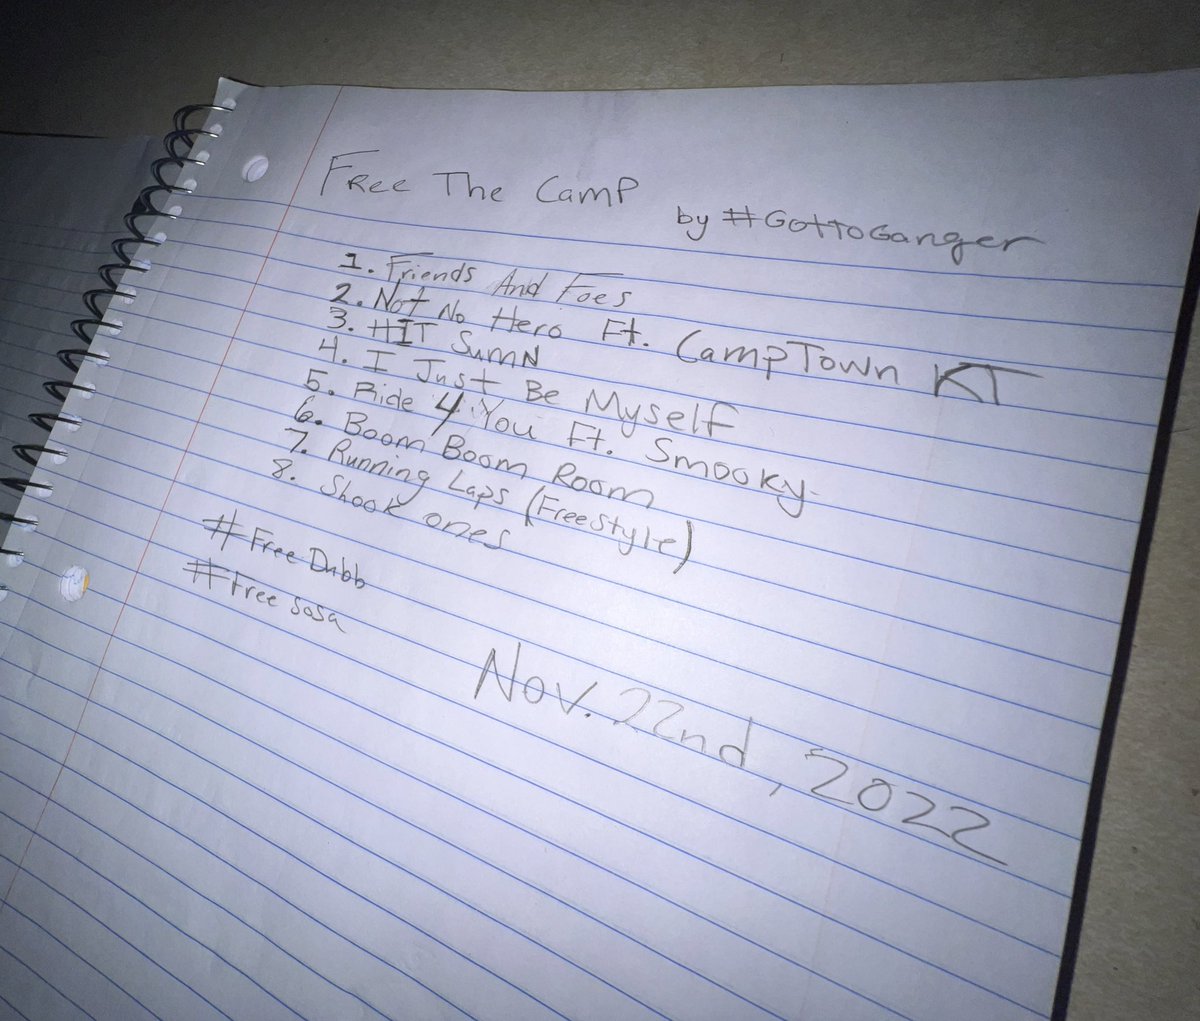 Free The Camp by #GottoGanger
1. Friends And Foes
2. Not No Hero Ft. CampTown KT
3. HIT SumN
4. I Just Be Myself
5. Ride 4 You Ft. Smooky
6. Boom Boom Room
7. Running Laps (Freestyle)
8. Shook ones
#Free Dubb
#Free sosa
Nov. 22nd, 2022